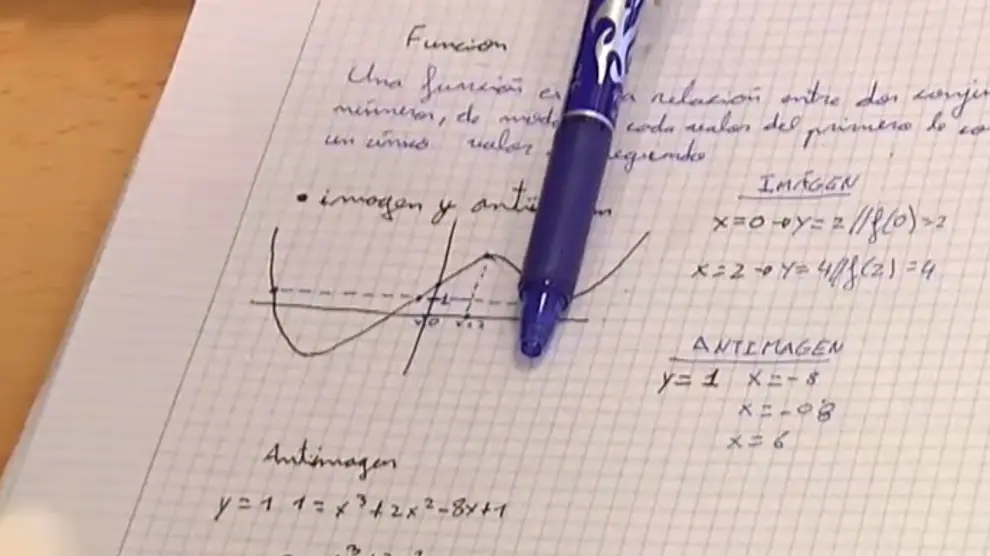 Función
Una función es relación entre dos
números, de cada valor del primero le
un único valor
• imagen y
1
x=2
IMÁGEN
x=0 → y=2 // f(0)=2
x=2 → y=4 // f(2)=4
ANTIMAGEN
y=1 x=-8
x=-08
x=6
Antimagen
y=1 1=x³+2x²-8x+1